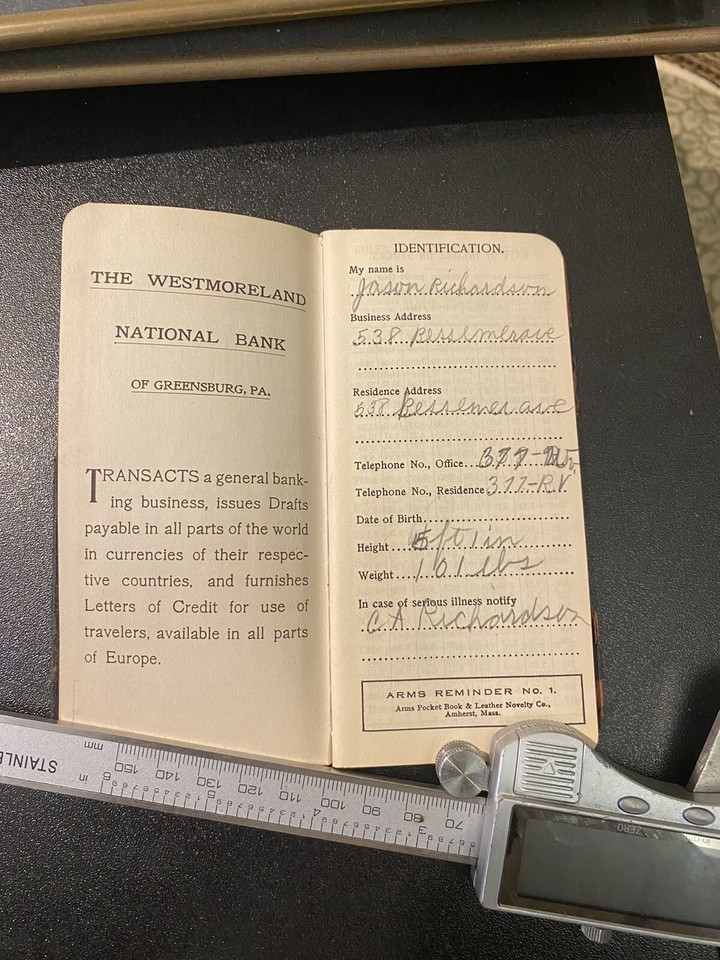 THE WESTMORELAND
NATIONAL BANK
OF GREENSBURG, PA.
TRANSACTS a general bank-
ing business, issues Drafts
payable in all parts of the world
in currencies of their respec-
tive countries, and furnishes
Letters of Credit for use of
travelers, available in all parts
of Europe.
IDENTIFICATION.
My name is
Jason Richardson
Business Address
538 Bessemer ave
Residence Address
538 Bessemer ave
Telephone No., Office
Telephone No., Residence 377-R.V.
Date of Birth
Height 5ft 1 in
Weight 101 lbs
In case of serious illness notify
C A Richardson
ARMS REMINDER No. 1.
Arms Pocket Book & Leather Novelty Co.,
Amherst, Mass.
STAINLE
mm 150 140 130 120 110 100 90 80 70
in 6 5 4 3
ZERO